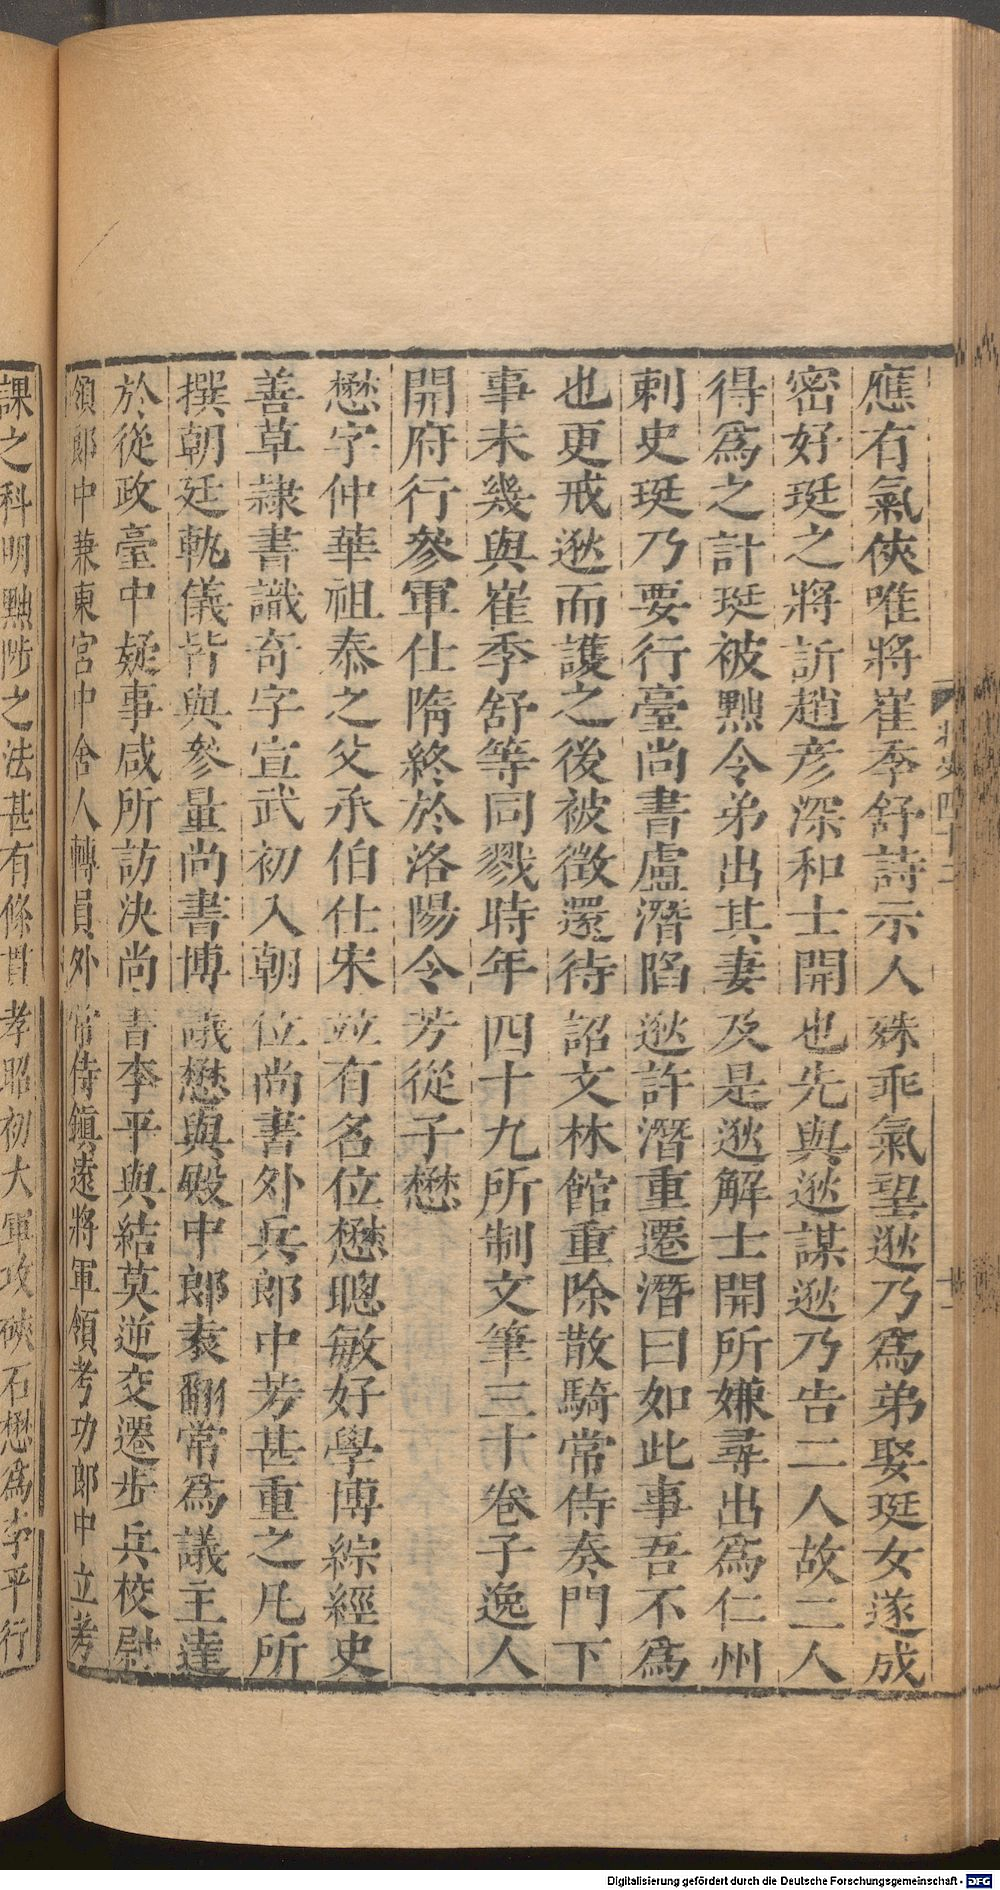 應有氣俠唯將崔季舒詩示人殊乖氣望逖乃爲弟娶珽女遂成
密好珽之將訢趙彦深和士開也先與逖謀逖乃告二人故二人
得爲之計珽被黜令弟出其妻及是逖解士開所嫌尋出爲仁州
刺史珽乃要行臺尚書盧潛陷逖許潛重遷潛曰如此事吾不爲
也更戒逖而護之後被徵還待詔文林館重除散騎常侍奏門下
事未幾與崔季舒等同戮時年四十九所制文筆三十卷子逸人
開府行參軍仕隋終於洛陽令芳從子懋
懋字仲華祖泰之父承伯仕宋竝有名位懋聰敏好學博綜經史
善草隷書識奇字宣武初入朝位尚書外兵郎中芳甚重之凡所
撰朝廷軌儀皆與參量尚書博議懋與殿中郎袁翻常爲議主達
於從政臺中疑事咸所訪決尚書李平與結莫逆交遷步兵校尉
領郎中兼東宮中舍人轉員外常侍鎮遠將軍領考功郎中立考
課之科明黜陟之法甚有條貫孝昭初大軍攻硤石懋爲李平行
北史四十二
Digitalisierung gefördert durch die Deutsche Forschungsgemeinschaft - DFG